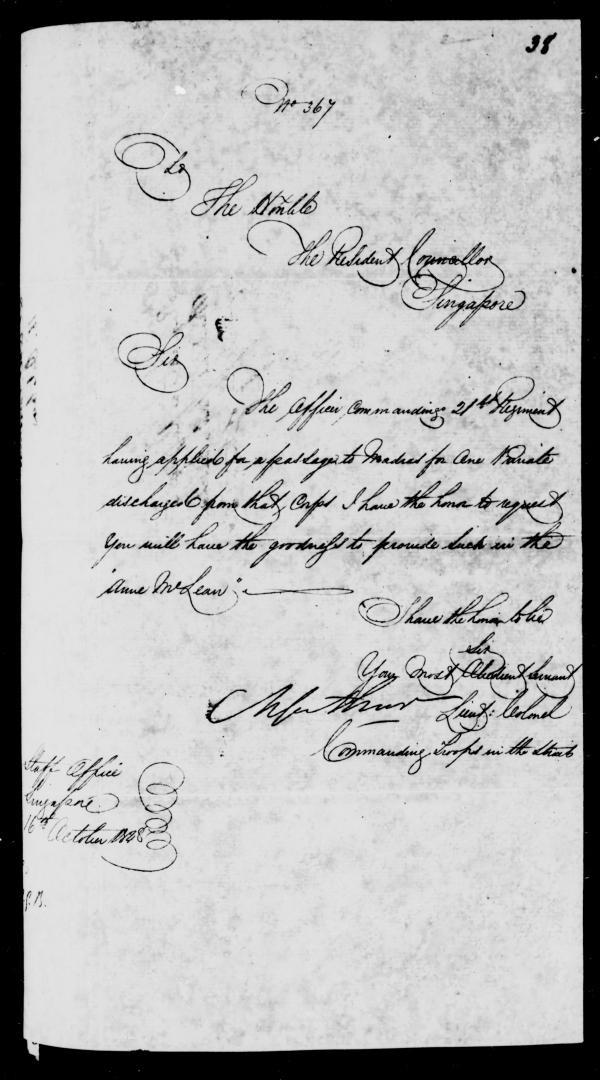 38
No 367
To
The Honble
The Resident Councellor
Singapore
Sir
The Officer Commanding 21st Regiment
having applied for a passage to Madras for One Private
discharged from that Corps I have the honor to request
you will have the goodness to provide such in the
"Anne McLean".
I have the honor to be
Sir
Your Most Obedient Servant
Lieut: Colonel
Commanding Troops in the Straits
Staff Office
Singapore
16th October 1828